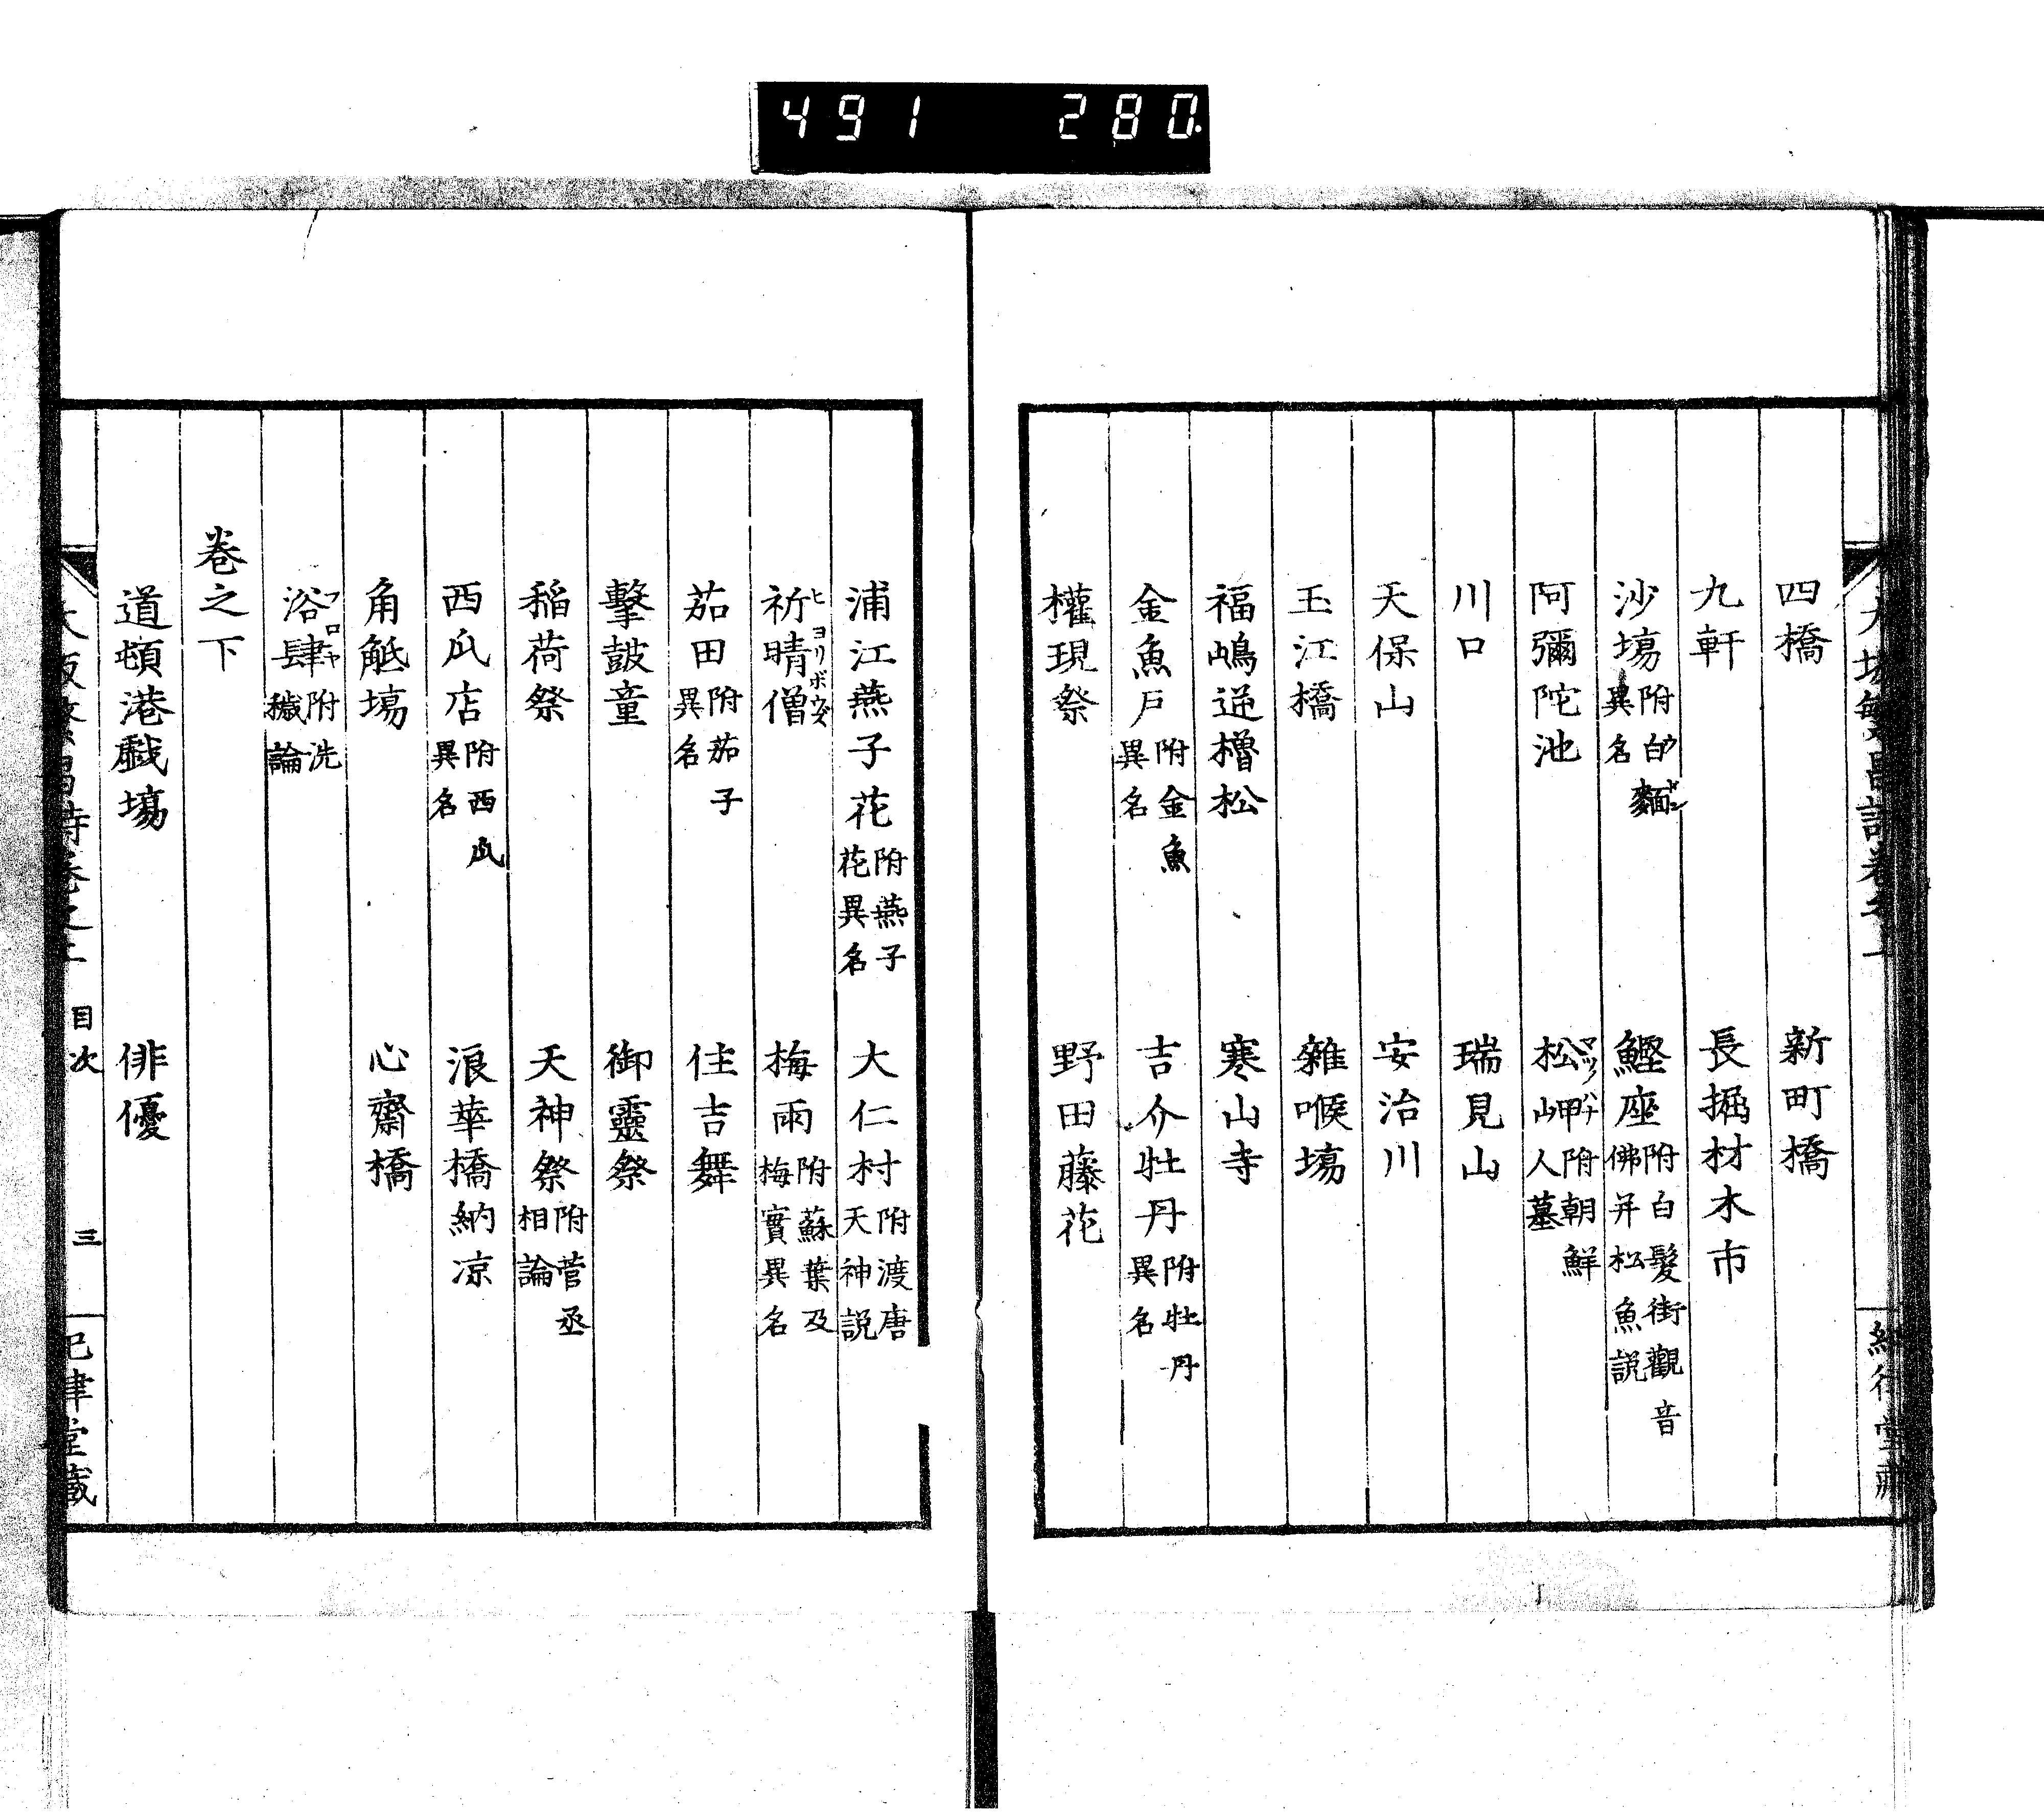 491 280.
四橋 新町橋
九軒 長堀材木市
沙塲附白麵異名 鰹座附白髮街觀音佛并松魚説
阿彌陀池 松岬附朝鮮人墓
川口 瑞見山
天保山 安治川
玉江橋 雜喉塲
福嶋逆櫓松 寒山寺
金魚戸附金魚異名 吉介牡丹附牡丹異名
權現祭 野田藤花
浦江燕子花附燕子花異名 大仁村附渡唐天神説
祈晴僧 梅雨附蘇葉及梅實異名
ヒヨリボウズ
茄田附茄子異名 住吉舞
擊鼓童 御靈祭
稲荷祭 天神祭附菅丞相論
西瓜店附西瓜異名 浪華橋納凉
角觝塲 心齋橋
浴肆附洗穢論
フロヤ
卷之下
道頓港戯塲 俳優
大阪繁昌詩卷之上 目次 三 紀律堂蔵